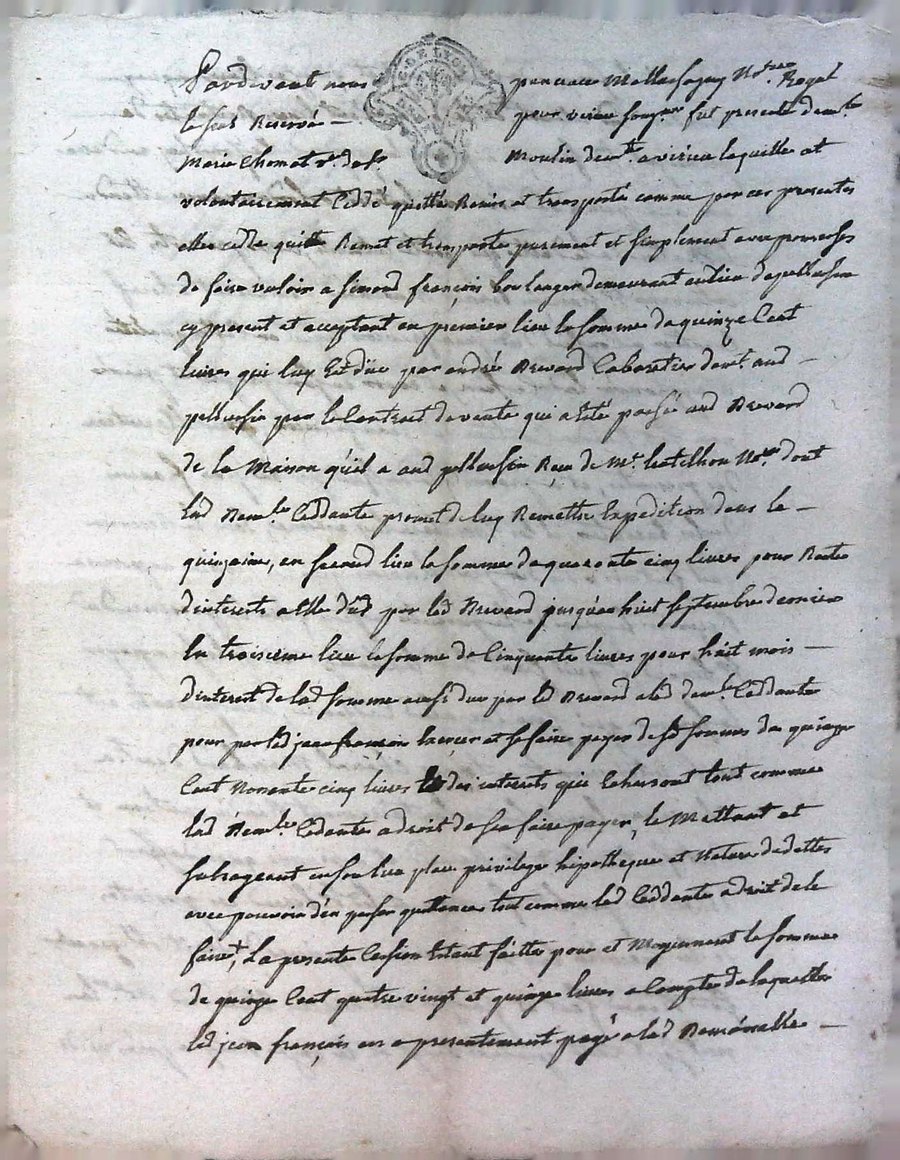 Pardevant nous
le seel Reservé —
pour virieu soug.né fut presente dem.lle
Marie Chomat v.e de s.r Moulin dem.te a virieu laquelle at
volontairement Ceddé quitté Remis et transporté comme par ces presentes
elles cedde quitte Remet et transporte purement et simplement avec promesses
de faire valoir a françois boulanger demeurant au lieu de pellussin
cy present et acceptant en premier lieu la somme de quinze Cent
livres qui luy Est düe par andré Cabaretier dem.t aud —
pellussin par le Contract de vente qui a Eté passé aud
de la Maison qu'il a aud pellussin Reçu de M.e No.re dont
lad Dem.lle Ceddante promet de luy Remettre Expedition dans la —
quinzaine, en second lieu la somme de quarante cinq livres pour Reste
d'interets a Elle dûs par led jusqu'au huit septembre dernier
En troisieme lieu la somme de Cinquante livres pour huit mois —
d'interest de lad somme aussi due par led a lad dem.lle Ceddante
pour par led jean françois Exiger et se faire payer desd sommes de quinze
Cent Nonente cinq livres des interets qui Echerront tout comme
lad Dem.lle Cedante a droit de s'en faire payer, le Mettant et
subrogeant en son lieu place privilege hipotheque et Nature de dettes
avec pouvoir d'en passer quittances tout comme lad Ceddante a droit de le
faire, La presente Cession Etant faitte pour et Moyennent la somme
de quinze Cent quatre vingt et quinze livres a Compte de laquelle
led jean françois en a presentement payé a lad Demoiselle —